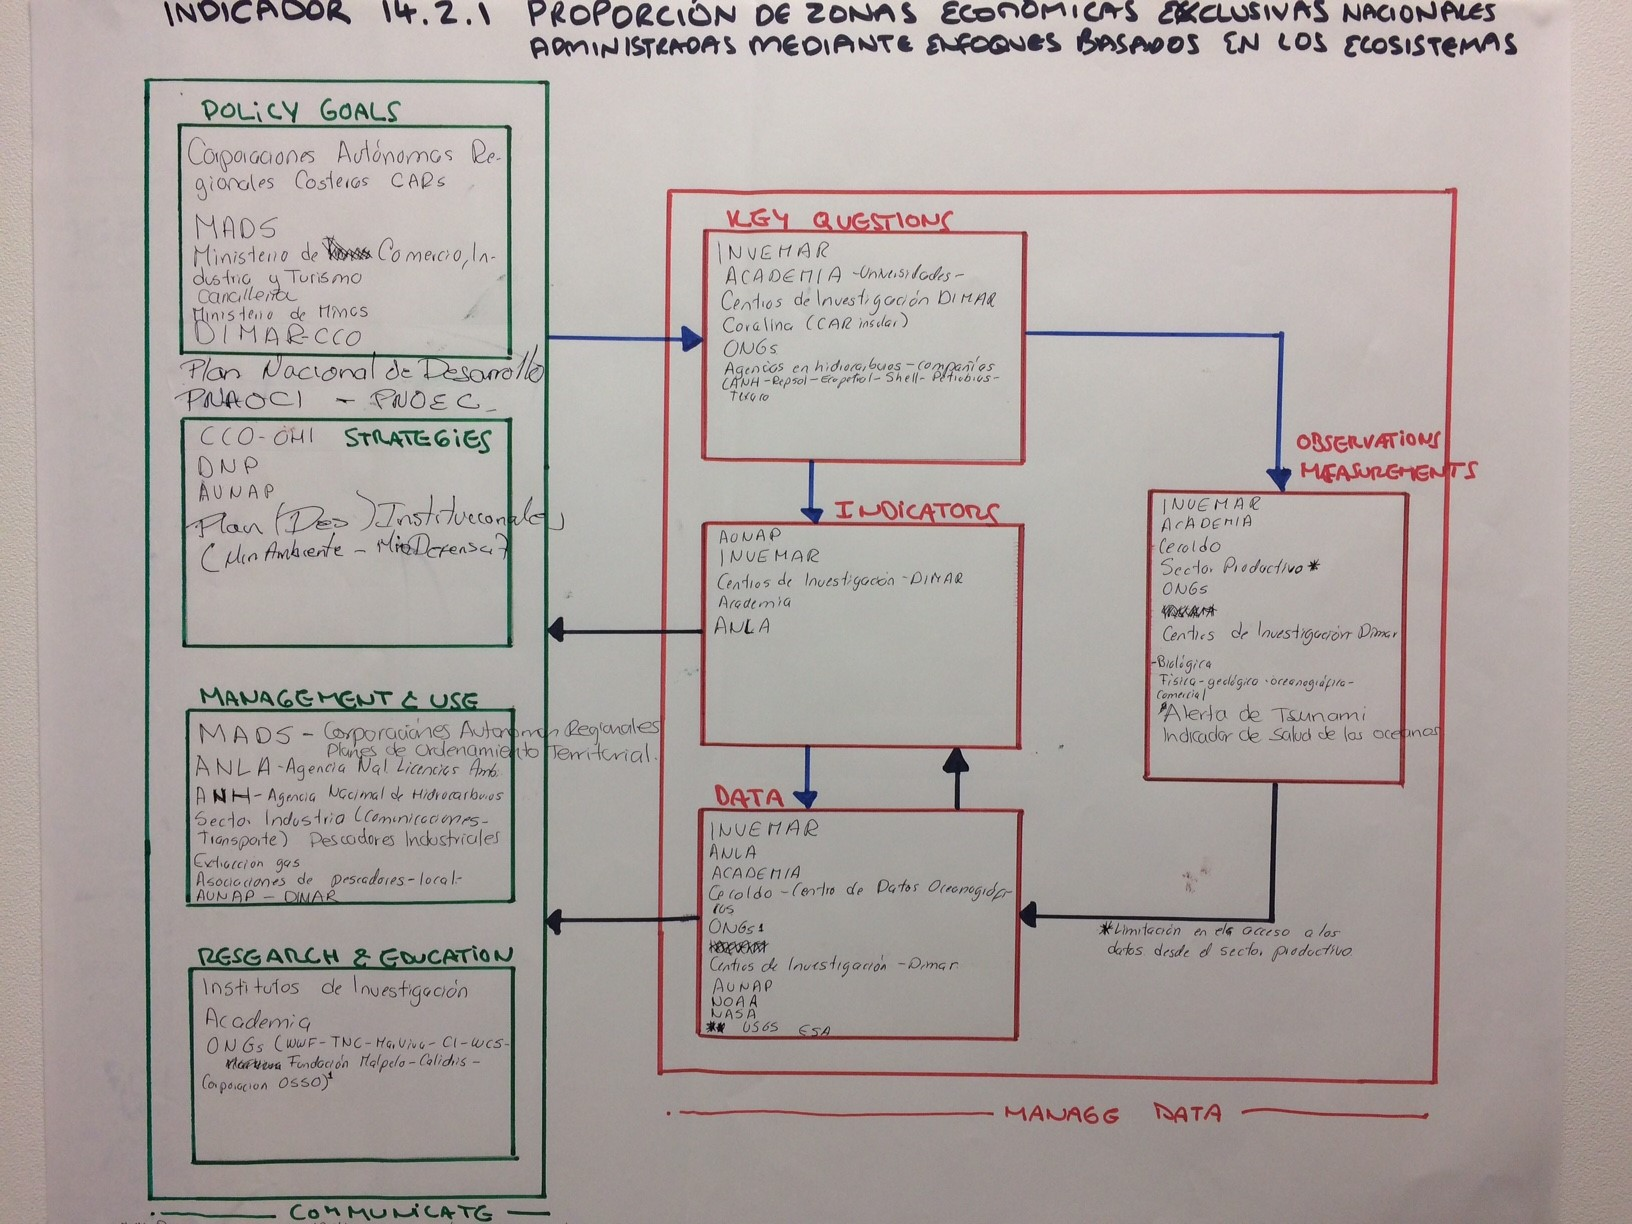 INDICADOR 14.2.1 PROPORCIÓN DE ZONAS ECONÓMICAS EXCLUSIVAS NACIONALES
ADMINISTRADAS MEDIANTE ENFOQUES BASADOS EN LOS ECOSISTEMAS
POLICY GOALS
Corporaciones Autónomas Re-
gionales Costeras CARs
MADS
Ministerio de Comercio, In-
dustria y Turismo
Cancillería
Ministerio de Minas
DIMAR-CCO
Plan Nacional de Desarrollo
PNAOCI - PNOEC
CCO-OMI STRATEGIES
DNP
AUNAP
Plan (Des) Institucionales
(MinAmbiente - MinDefensa)
MANAGEMENT & USE
MADS - Corporaciones Autónomas Regionales
Planes de Ordenamiento Territorial.
ANLA - Agencia Nal. Licencias Amb.
ANH - Agencia Nacional de Hidrocarburos
Sector Industria (Comunicaciones-
Transporte) Pescadores Industriales
Extracción gas
Asociaciones de pescadores-local-
AUNAP - DIMAR
RESEARCH & EDUCATION
Institutos de Investigación
Academia
ONGs (WWF-TNC-MarViva-CI-WCS-
Fundación Malpelo-Calidris-
Corporación OSSO)¹
COMMUNICATE
KEY QUESTIONS
INVEMAR
ACADEMIA -Universidades-
Centros de Investigación DIMAR
Coralina (CAR insular)
ONGs
Agencias en hidrocarburos - compañías
(ANH-Repsol-Ecopetrol-Shell-Petrobras-
Texaco
INDICATORS
AUNAP
INVEMAR
Centros de Investigación -DIMAR
Academia
ANLA
DATA
INVEMAR
ANLA
ACADEMIA
Cecoldo - Centro de Datos Oceanográfi-
cos
ONGs¹
Centros de Investigación -Dimar
AUNAP
NOAA
NASA
** USGS ESA
OBSERVATIONS
MEASUREMENTS
INVEMAR
ACADEMIA
Cecoldo
Sector Productivo *
ONGs
Centros de Investigación Dimar
-Biológica
Física-geológica-oceanográfica-
Comercial
*Alerta de Tsunami
Indicador de Salud de los oceanos
*Limitación en el acceso a los
datos desde el sector productivo
MANAGE DATA